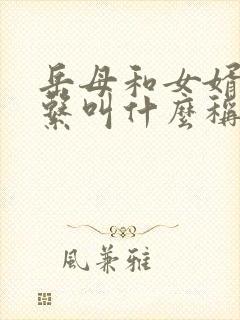 岳母和女婿
繫叫什麼稱
風兼雅